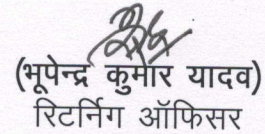 (भूपेन्द्र कुमार यादव)
रिटर्निग ऑफिसर